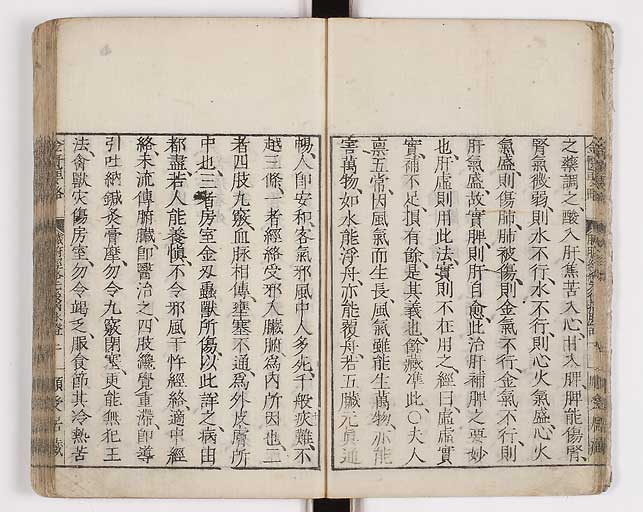 之藥調之酸入肝焦苦入心甘入脾脾能傷腎
腎氣微弱則水不行水不行則心火氣盛心火
氣盛則傷肺肺被傷則金氣不行金氣不行則
肝氣盛故實脾則肝自愈此治肝補脾之要妙
也肝虛則用此法實則不在用之經曰虛虛實
實補不足損有餘是其義也餘藏準此○夫人
稟五常因風氣而生長風氣雖能生萬物亦能
害萬物如水能浮舟亦能覆舟若五臟元真通
暢人即安和客氣邪風中人多死千般疢難不
越三條一者經絡受邪入臟腑為內所因也二
者四肢九竅血脉相傳壅塞不通為外皮膚所
中也三者房室金刃蟲獸所傷以此詳之病由
都盡若人能養慎不令邪風干忤經絡適中經
絡未流傳腑臟即醫治之四肢纔覺重滯即導
引吐納鍼灸膏摩勿令九竅閉塞更能無犯王
法禽獸灾傷房室勿令竭乏服食節其冷熱苦